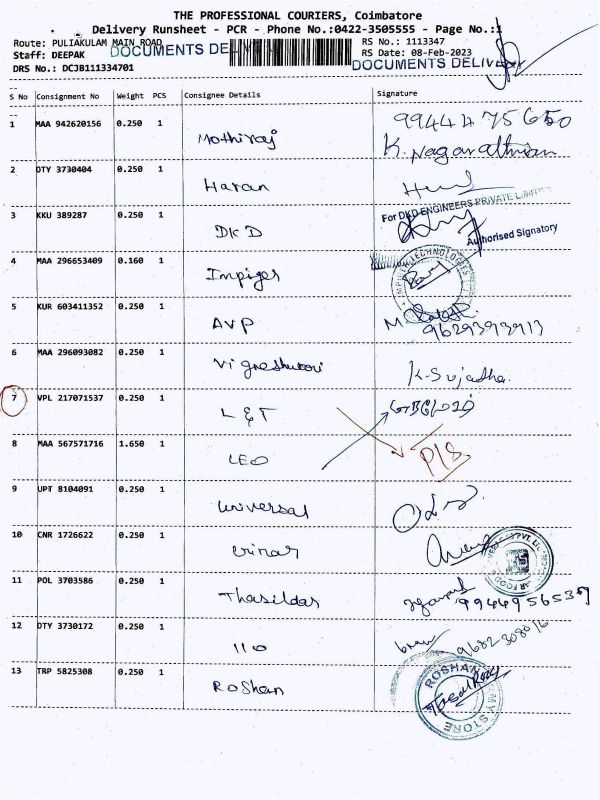 THE PROFESSIONAL COURIERS, Coimbatore
Delivery Runsheet - PCR - Phone No.:0422-3505555 - Page No.:1
Route: PULIAKULAM MAIN ROAD
RS No.: 1113347
Staff: DEEPAK
RS Date: 08-Feb-2023
DOCUMENTS DE
DOCUMENTS DELIVER
DRS No.: DCJB111334701
S No Consignment No Weight PCS Consignee Details Signature
1 MAA 942620156 0.250 1 Mothiraj 99444 75650
K. Nagarathinam
2 DTY 3730404 0.250 1 Haran
3 KKU 389287 0.250 1 DKD For DKD ENGINEERS PRIVATE LIMITED
Authorised Signatory
4 MAA 296653409 0.160 1 Impiger
5 KUR 603411352 0.250 1 AVP
9629393913
6 MAA 296093082 0.250 1 Vigneshwari K. Sujatha.
7 VPL 217071537 0.250 1 L & T
8 MAA 567571716 1.650 1 LEO P/S
9 UPT 8104091 0.250 1 Universal
10 CNR 1726622 0.250 1
11 POL 3703586 0.250 1 Thasildar
12 DTY 3730172 0.250 1 110
13 TRP 5825308 0.250 1 Roshan ROSHAN
MY STORE